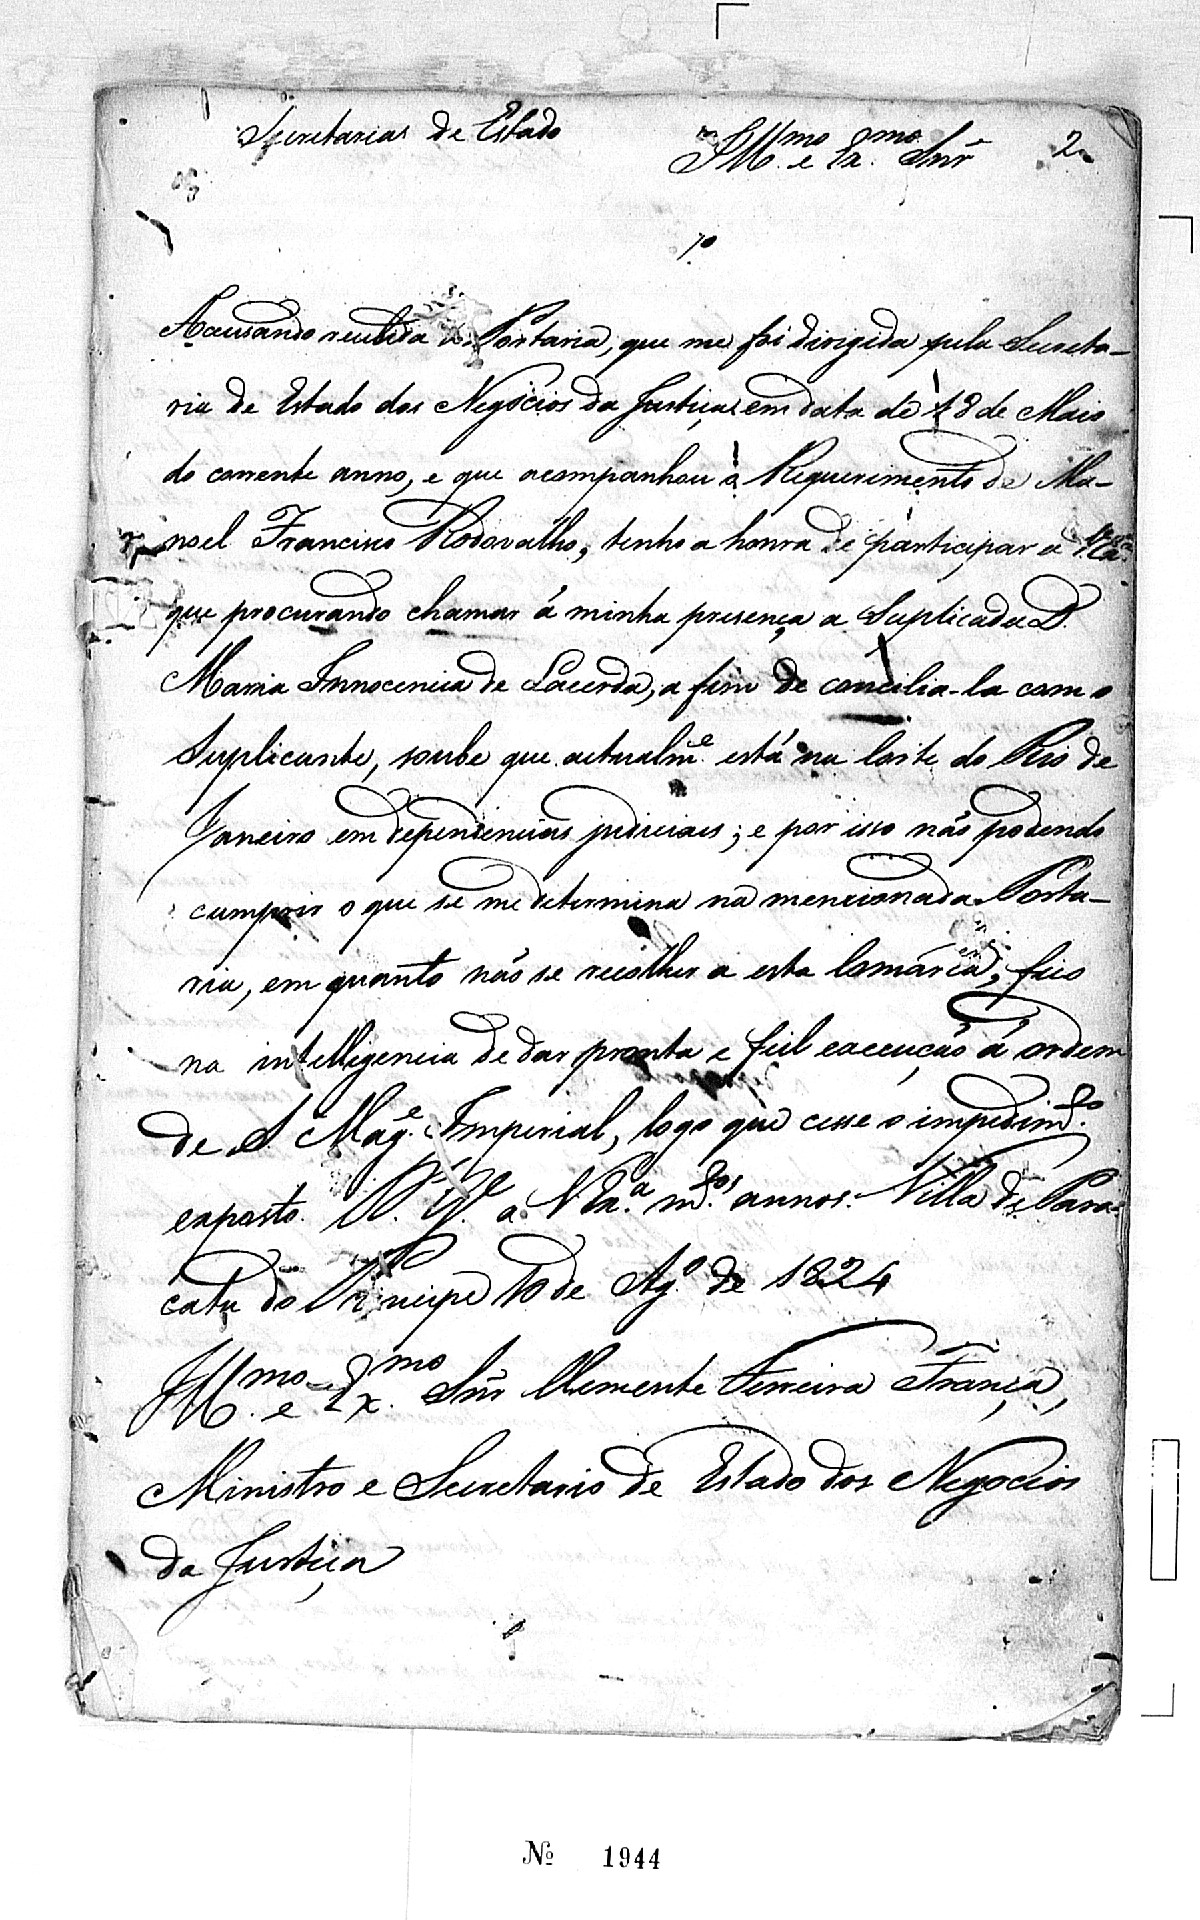 Secretarias de Estado
Illmo. e Exmo. Snr
2
1º
Accusando recebida a Portaria, que me foi dirigida pela Secreta-
ria de Estado dos Negocios da Justiça em data de 18 de Maio
do corrente anno, e que acompanhou o Requerimento de Ma-
noel Francisco Rodovalho, tenho a honra de participar a
que procurando chamar á minha presença a Suplicada D.
Maria Innocencia de Lacerda, a fim de concilia-la com o
Suplicante, soube que actualme. está na Corte do Rio de
Janeiro em dependencias judiciaes; e por isso não podendo
cumprir o que se me determina na mencionada Porta-
ria, em quanto não se recolher a esta Comarca, fico
na intelligencia de dar prompta e fiel execução á ordem
de S. Mage. Imperial, logo que cesse o impedimto.
exposto. Ds. Ge. a V. Exa. ms. annos. Villa de Para-
catu do Principe 10 de Agº de 1824
Illmo. e Exmo. Snr Clemente Ferreira França,
Ministro e Secretario de Estado dos Negocios
da Justiça
Nº 1944